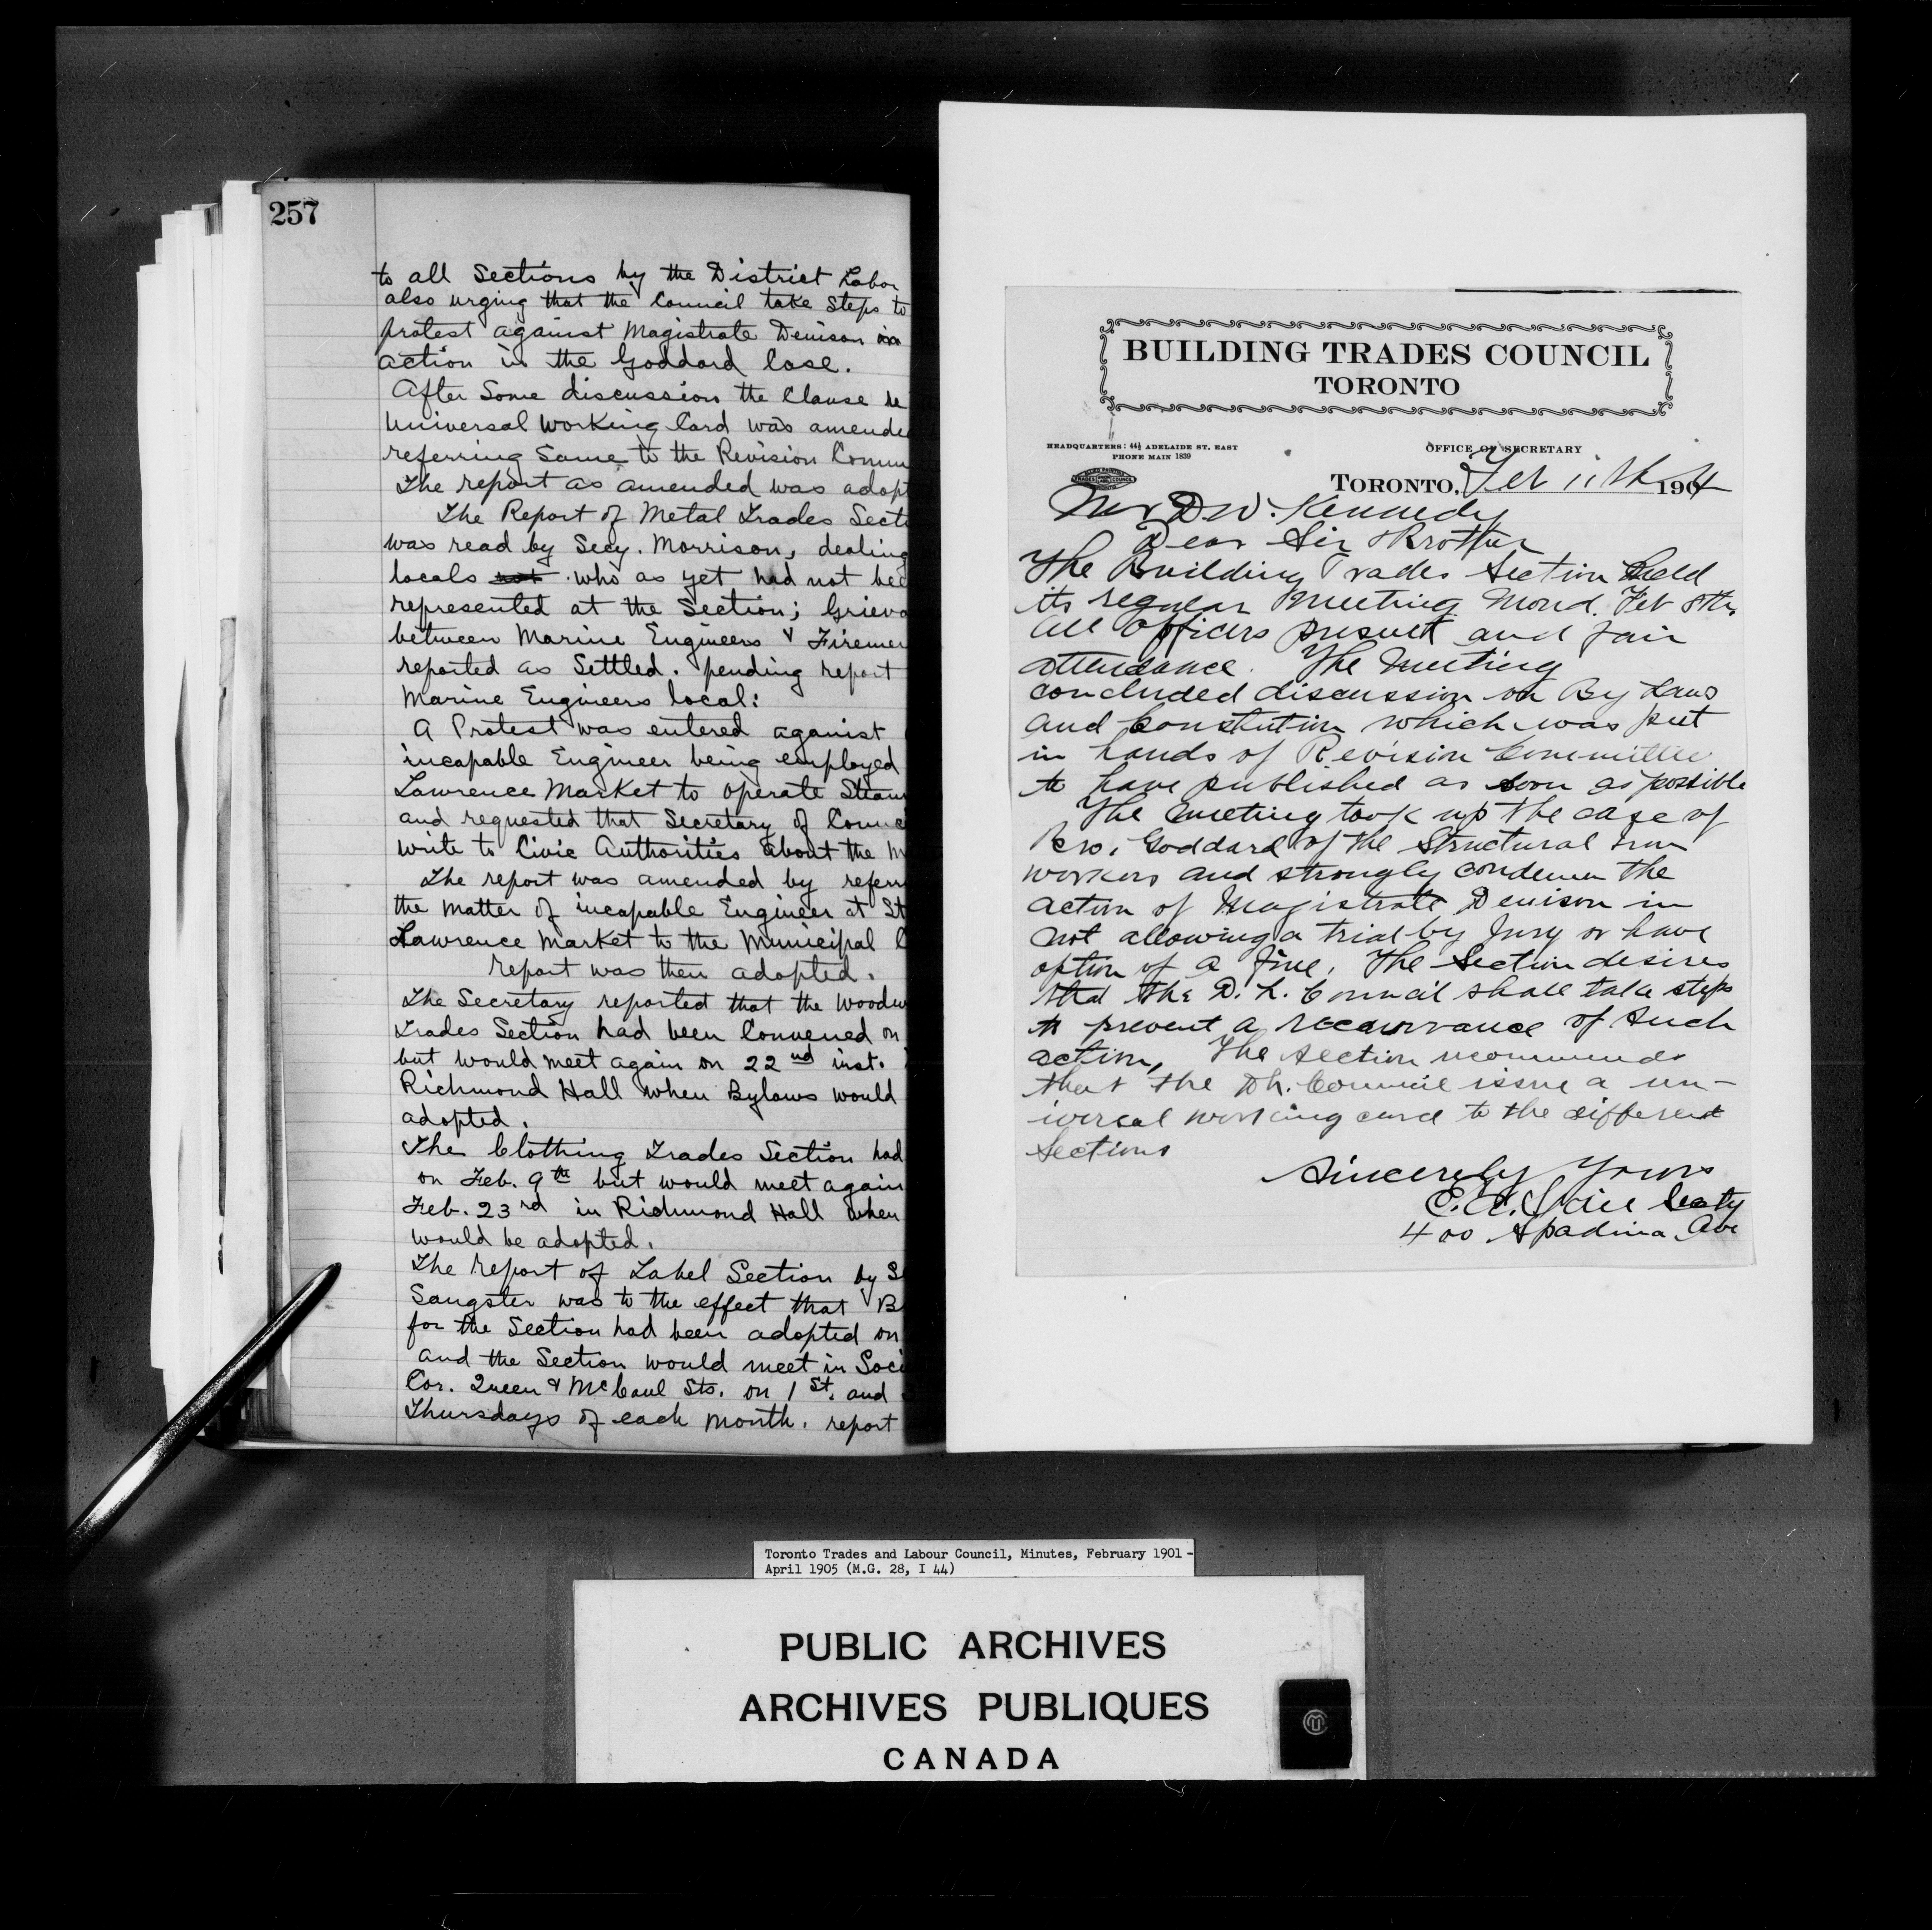 257
to all Sections by the District Labor
also urging that the Council take Steps to
protest against Magistrate Denison in
action in the Goddard Case.
After Some discussion the Clause re
Universal Working Card was amende
referring Same to the Revision Comm
The report as amended was adopt
The Report of Metal Trades Secti
was read by Secy. Morrison, dealing
locals not who as yet had not bee
represented at the Section; Grieva
between Marine Engineers & Firemen
reported as Settled. pending report
Marine Engineers local:
A Protest was entered against
incapable Engineer being employed
Lawrence Market to operate Steam
and requested that Secretary of Counc
write to Civic Authorities about the m
The report was amended by referr
the matter of incapable Engineer at St
Lawrence Market to the Municipal C
report was then adopted.
The Secretary reported that the Woodw
Trades Section had been Convened on
but would meet again on 22nd inst.
Richmond Hall when Bylaws would
adopted.
The Clothing Trades Section had
on Feb. 9th but would meet again
Feb. 23rd in Richmond Hall when
would be adopted.
The report of Label Section by S
Sangster was to the effect that B
for the Section had been adopted on
and the Section would meet in Soci
Cor. Queen & McCaul Sts. on 1st. and
Thursdays of each month. report
BUILDING TRADES COUNCIL
TORONTO
HEADQUARTERS: 44½ ADELAIDE ST. EAST
PHONE MAIN 1839
OFFICE OF SECRETARY
TORONTO, Feb 11th 1904
Mr D W. Kennedy
Dear Sir & Brother
The Building Trades Section held
its regular meeting Mond. Feb 8th
All officers present and fair
attendance. The meeting
concluded discussion on By Laws
and Constution which was put
in hands of Revision Committee
to have published as soon as possible
The meeting took up the case of
Bro. Goddard of the Structural Iron
workers and strongly condemn the
action of Magistrate Denison in
not allowing a trial by Jury or have
option of a fine. The Section desires
that the D. L. Council shall take steps
to prevent a recourrance of such
action, The section recommends
that the D L. Council issue a un-
iversal working card to the different
Sections
Sincerely Yours
C. E. Secty
400 Spadina Ave
Toronto Trades and Labour Council, Minutes, February 1901 -
April 1905 (M.G. 28, I 44)
PUBLIC ARCHIVES
ARCHIVES PUBLIQUES
CANADA